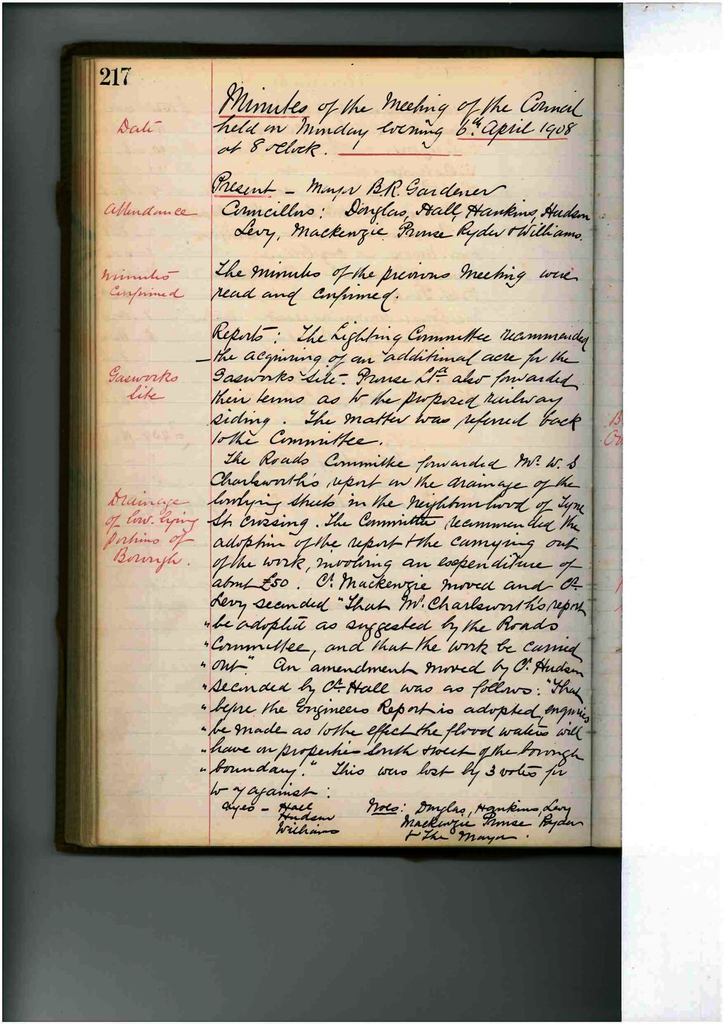 217
Minutes of the Meeting of the Council
Date
held on Monday evening 6th April 1908
at 8 o'clock.
Present - Mayor B.R. Gardener
Attendance
Councillors: Douglas, Hall, Hankins, Hudson
Levy, Mackenzie Prouse Ryder & Williams.
Minutes
Confirmed
The minutes of the previous Meeting were
read and confirmed.
Reports: The Lighting Committee recommended
the acquiring of an additional acre for the
Gasworks
Site
Gasworks site. Prouse Ltd. also forwarded
their terms as to the proposed railway
siding. The matter was referred back
to the Committee.
The Roads Committee forwarded Mr. W. S
Charlsworth's report on the drainage of the
Drainage
of low-lying
portions of
Borough.
lowlying streets in the neighbourhood of Tyne
St. crossing. The Committee recommended the
adoption of the report & the carrying out
of the work, involving an expenditure of
about £50. Cr. Mackenzie moved and Cr.
Levy seconded "That Mr. Charlsworth's report
"be adopted as suggested by the Roads
"Committee, and that the work be carried
"out." An amendment moved by Cr. Hudson
"seconded by Cr. Hall was as follows: "That
"before the Engineers Report is adopted, enquiries
"be made as to the effect the flood waters will
"have on properties South & West of the borough
"boundary." This was lost by 3 votes for
to 7 against:
Ayes - Hall
Hudson
Williams
Noes: Douglas, Hankins, Levy
Mackenzie Prouse Ryder
& The Mayor.